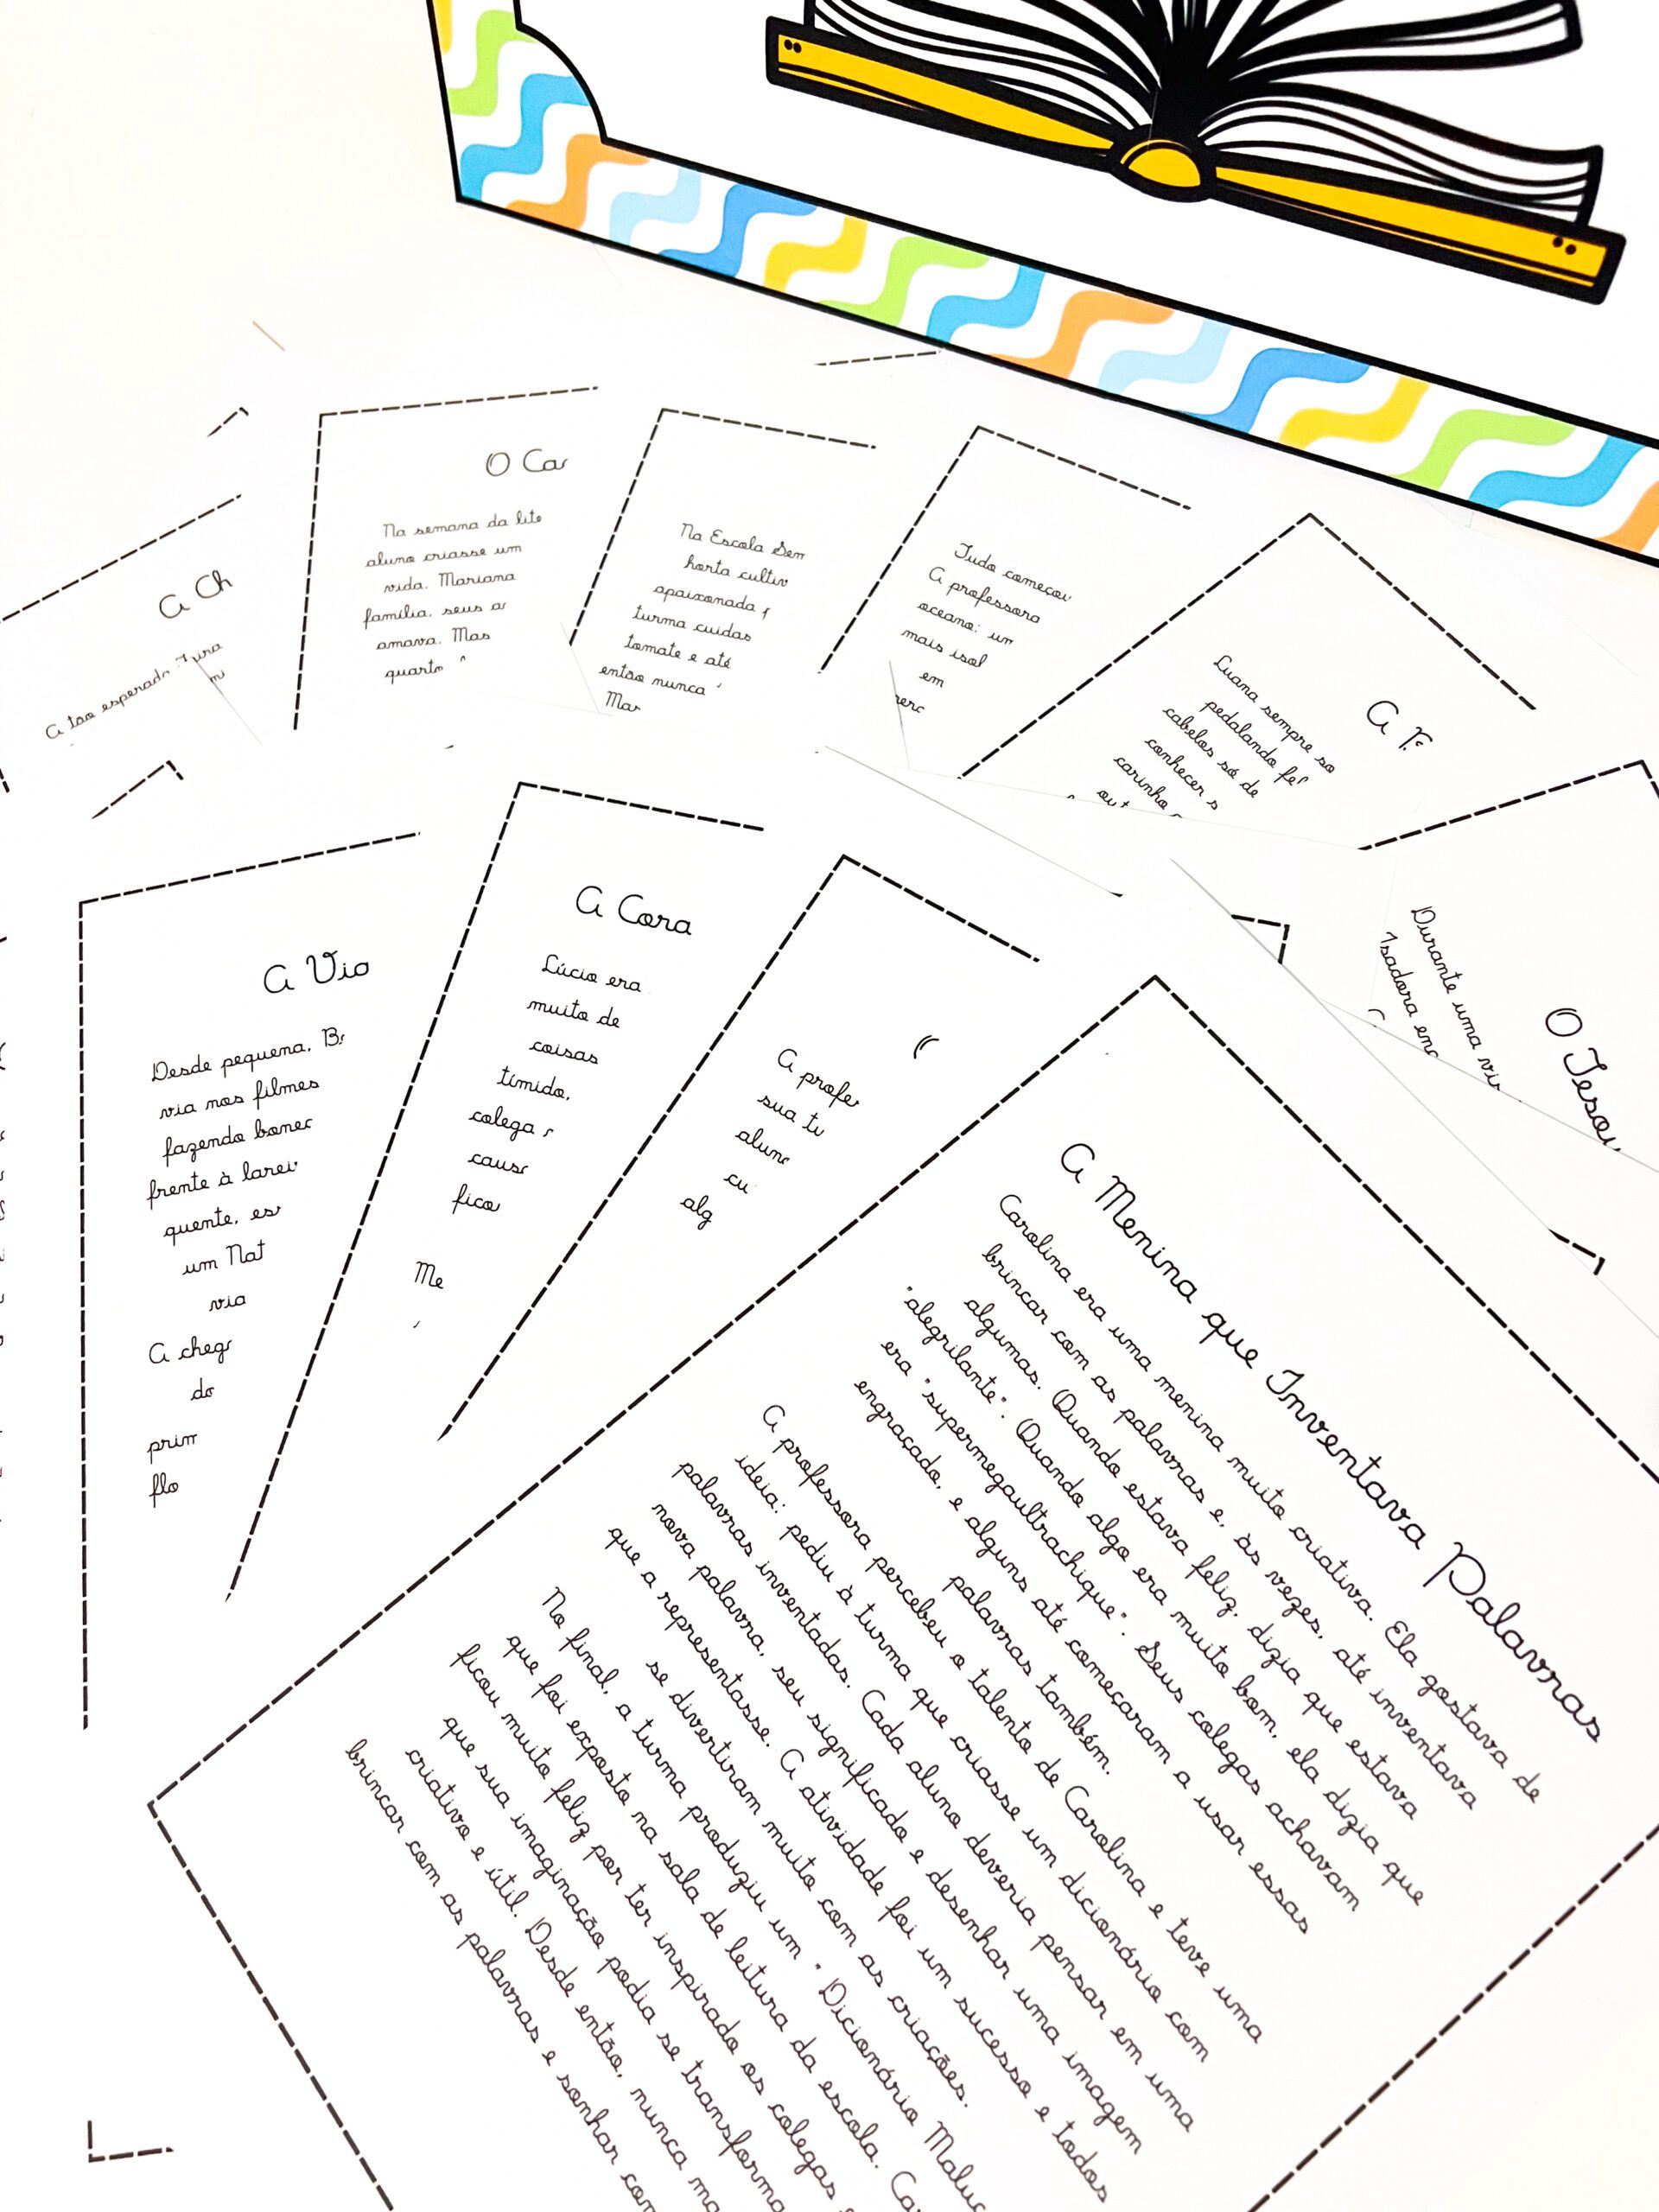 A Ch
A tão esperada
O Car
Na semana da lite
aluno criasse um
vida. Mariana
família, seus a
amava. Mas
quarto
Na Escola Sem
horta cultiv
apaixonada
turma cuidas
tomate e até
então nunca
Mar
Tudo começou
A professora
oceano: um
mais isol
em
A
Luana sempre so
pedalando
cabelos só de
conhecer s
carinho
O Tesou
Durante uma vis
Isadora enc
A Via
Desde pequena, B
via nos filmes
fazendo bonec
frente à larei
quente, es
um Nat
via
A cheg
do
prim
flo
A Cora
Lúcio era
muito de
coisas
tímido,
colega
caus
fico
Me
A profe
sua tu
alun
cu
alg
A Menina que Inventava Palavras
Carolina era uma menina muito criativa. Ela gostava de
brincar com as palavras e, às vezes, até inventava
algumas. Quando estava feliz, dizia que estava
"alegrilante". Quando algo era muito bom, ela dizia que
era "supermegaultrachique". Seus colegas achavam
engraçado, e alguns até começaram a usar essas
palavras também.
A professora percebeu o talento de Carolina e teve uma
ideia: pediu à turma que criasse um dicionário com
palavras inventadas. Cada aluno deveria pensar em uma
nova palavra, seu significado e desenhar uma imagem
que a representasse. A atividade foi um sucesso e todos
se divertiram muito com as criações.
No final, a turma produziu um "Dicionário Maluc
que foi exposto na sala de leitura da escola. Ca
ficou muito feliz por ter inspirado os colegas e
que sua imaginação podia se transforma
criativo e útil. Desde então, nunca ma
brincar com as palavras e sonhar com